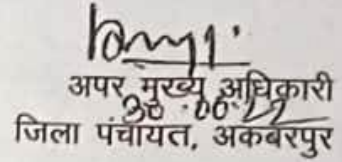 अपर मुख्य अधिकारी
जिला पंचायत, अकबरपुर